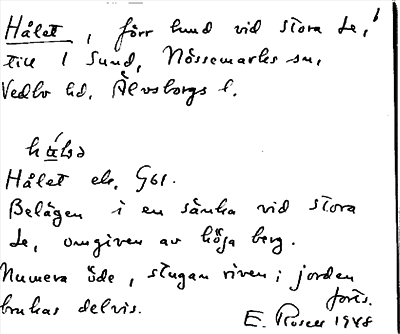 Hålet, förr lund vid stora Le,
till 1 Sund, Nössemarks sn,
Vedbo hd, Älvsborgs l.
Hålet ek. G61.
Belägen i en sänka vid stora
Le, omgiven av höga berg.
Numera öde, stugan riven; jorden
brukas delvis. forts.
E. Rosen 1948